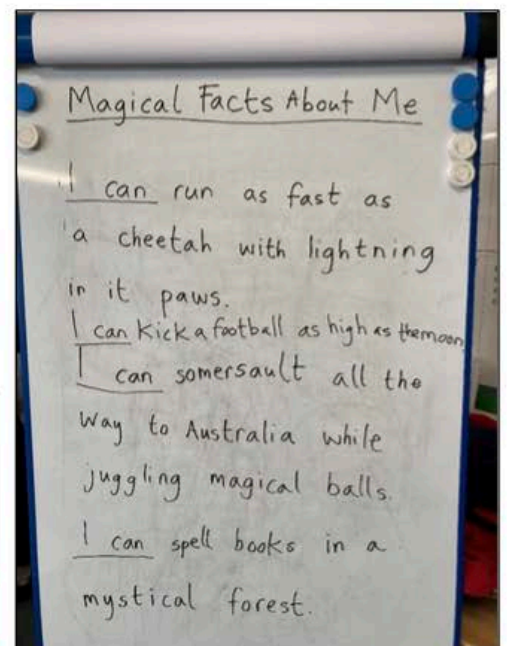 Magical Facts About Me
I can run as fast as
a cheetah with lightning
in it paws.
I can kick a football as high as the moon
I can somersault all the
way to Australia while
juggling magical balls.
I can spell books in a
mystical forest.